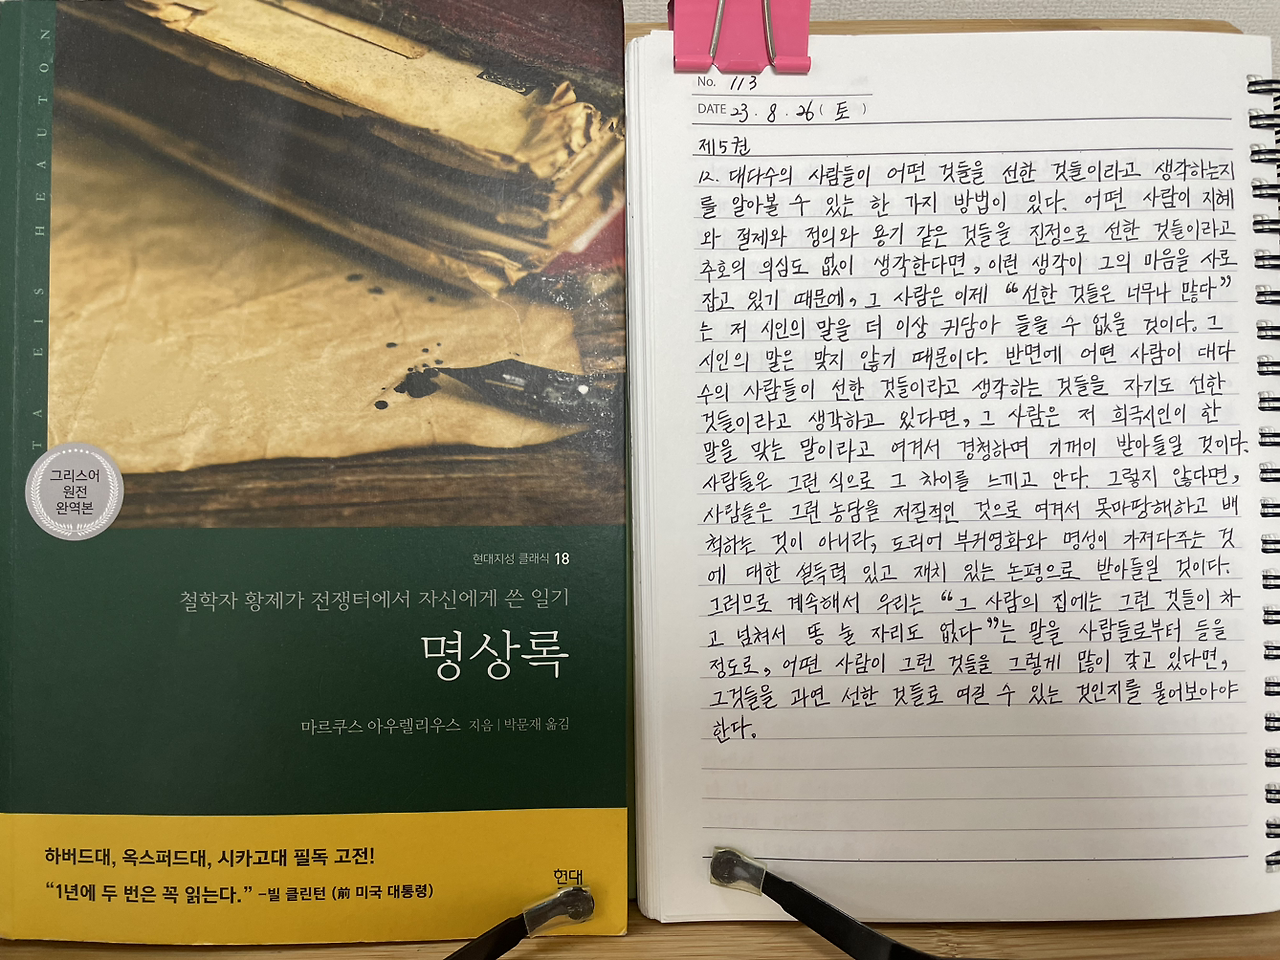 TA EIS HEAUTON
그리스어
원전
완역본
현대지성 클래식 18
철학자 황제가 전쟁터에서 자신에게 쓴 일기
명상록
마르쿠스 아우렐리우스 지음 | 박문재 옮김
하버드대, 옥스퍼드대, 시카고대 필독 고전!
“1년에 두 번은 꼭 읽는다.” –빌 클린턴 (前 미국 대통령)
현대
No. 113
DATE 23. 8. 26 ( 토 )
제5권
12. 대다수의 사람들이 어떤 것들을 선한 것들이라고 생각하는지
를 알아볼 수 있는 한 가지 방법이 있다. 어떤 사람이 지혜
와 절제와 정의와 용기 같은 것들을 진정으로 선한 것들이라고
추호의 의심도 없이 생각한다면, 이런 생각이 그의 마음을 사로
잡고 있기 때문에, 그 사람은 이제 “선한 것들은 너무나 많다”
는 저 시인의 말을 더 이상 귀담아 들을 수 없을 것이다. 그
시인의 말은 맞지 않기 때문이다. 반면에 어떤 사람이 대다
수의 사람들이 선한 것들이라고 생각하는 것들을 자기도 선한
것들이라고 생각하고 있다면, 그 사람은 저 희극시인이 한
말을 맞는 말이라고 여겨서 경청하며 기꺼이 받아들일 것이다.
사람들은 그런 식으로 그 차이를 느끼고 안다. 그렇지 않다면,
사람들은 그런 농담을 저질적인 것으로 여겨서 못마땅해하고 배
척하는 것이 아니라, 도리어 부귀영화와 명성이 가져다주는 것
에 대한 설득력 있고 재치 있는 논평으로 받아들일 것이다.
그러므로 계속해서 우리는 “그 사람의 집에는 그런 것들이 차
고 넘쳐서 똥 눌 자리도 없다”는 말을 사람들로부터 들을
정도로, 어떤 사람이 그런 것들을 그렇게 많이 갖고 있다면,
그것들을 과연 선한 것들로 여길 수 있는 것인지를 물어보아야
한다.